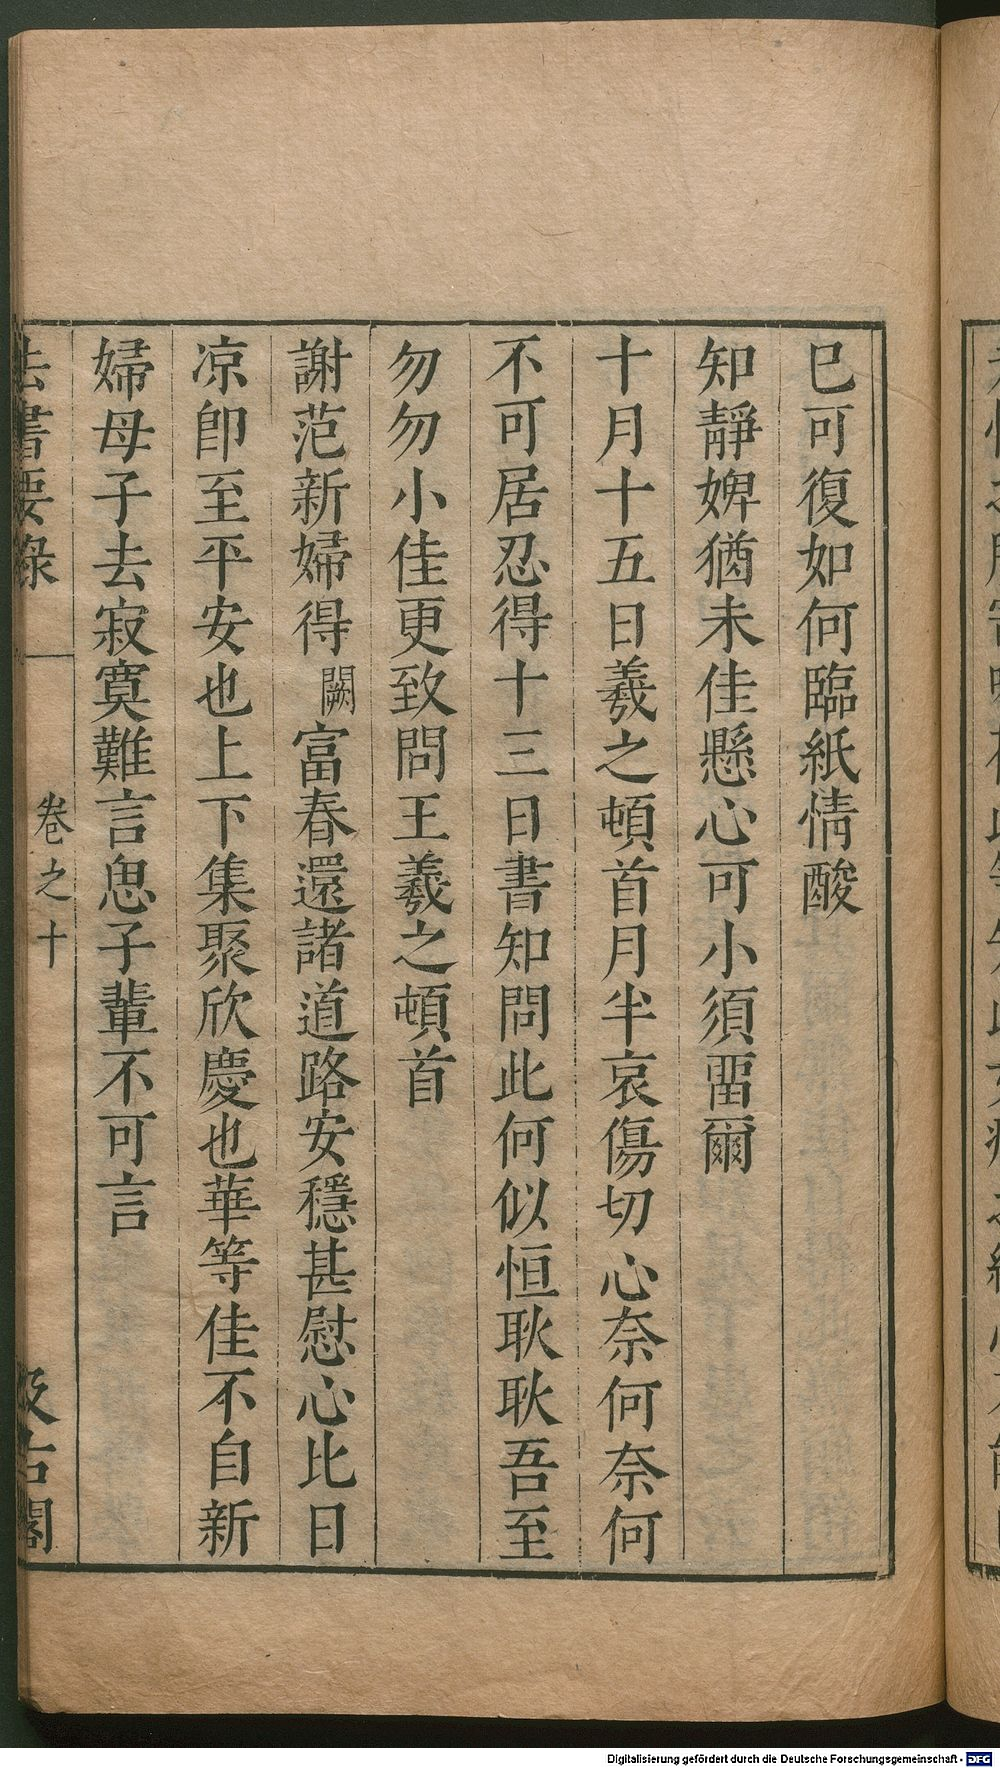 已可復如何臨紙情酸
知靜婢猶未佳懸心可小須畱爾
十月十五日羲之頓首月半哀傷切心奈何奈何
不可居忍得十三日書知問此何似恒耿耿吾至
勿勿小佳更致問王羲之頓首
謝范新婦得闕富春還諸道路安穩甚慰心比日
凉卽至平安也上下集聚欣慶也華等佳不自新
婦母子去寂寞難言思子輩不可言
法書要錄
卷之十
汲古閣
Digitalisierung gefördert durch die Deutsche Forschungsgemeinschaft - DFG